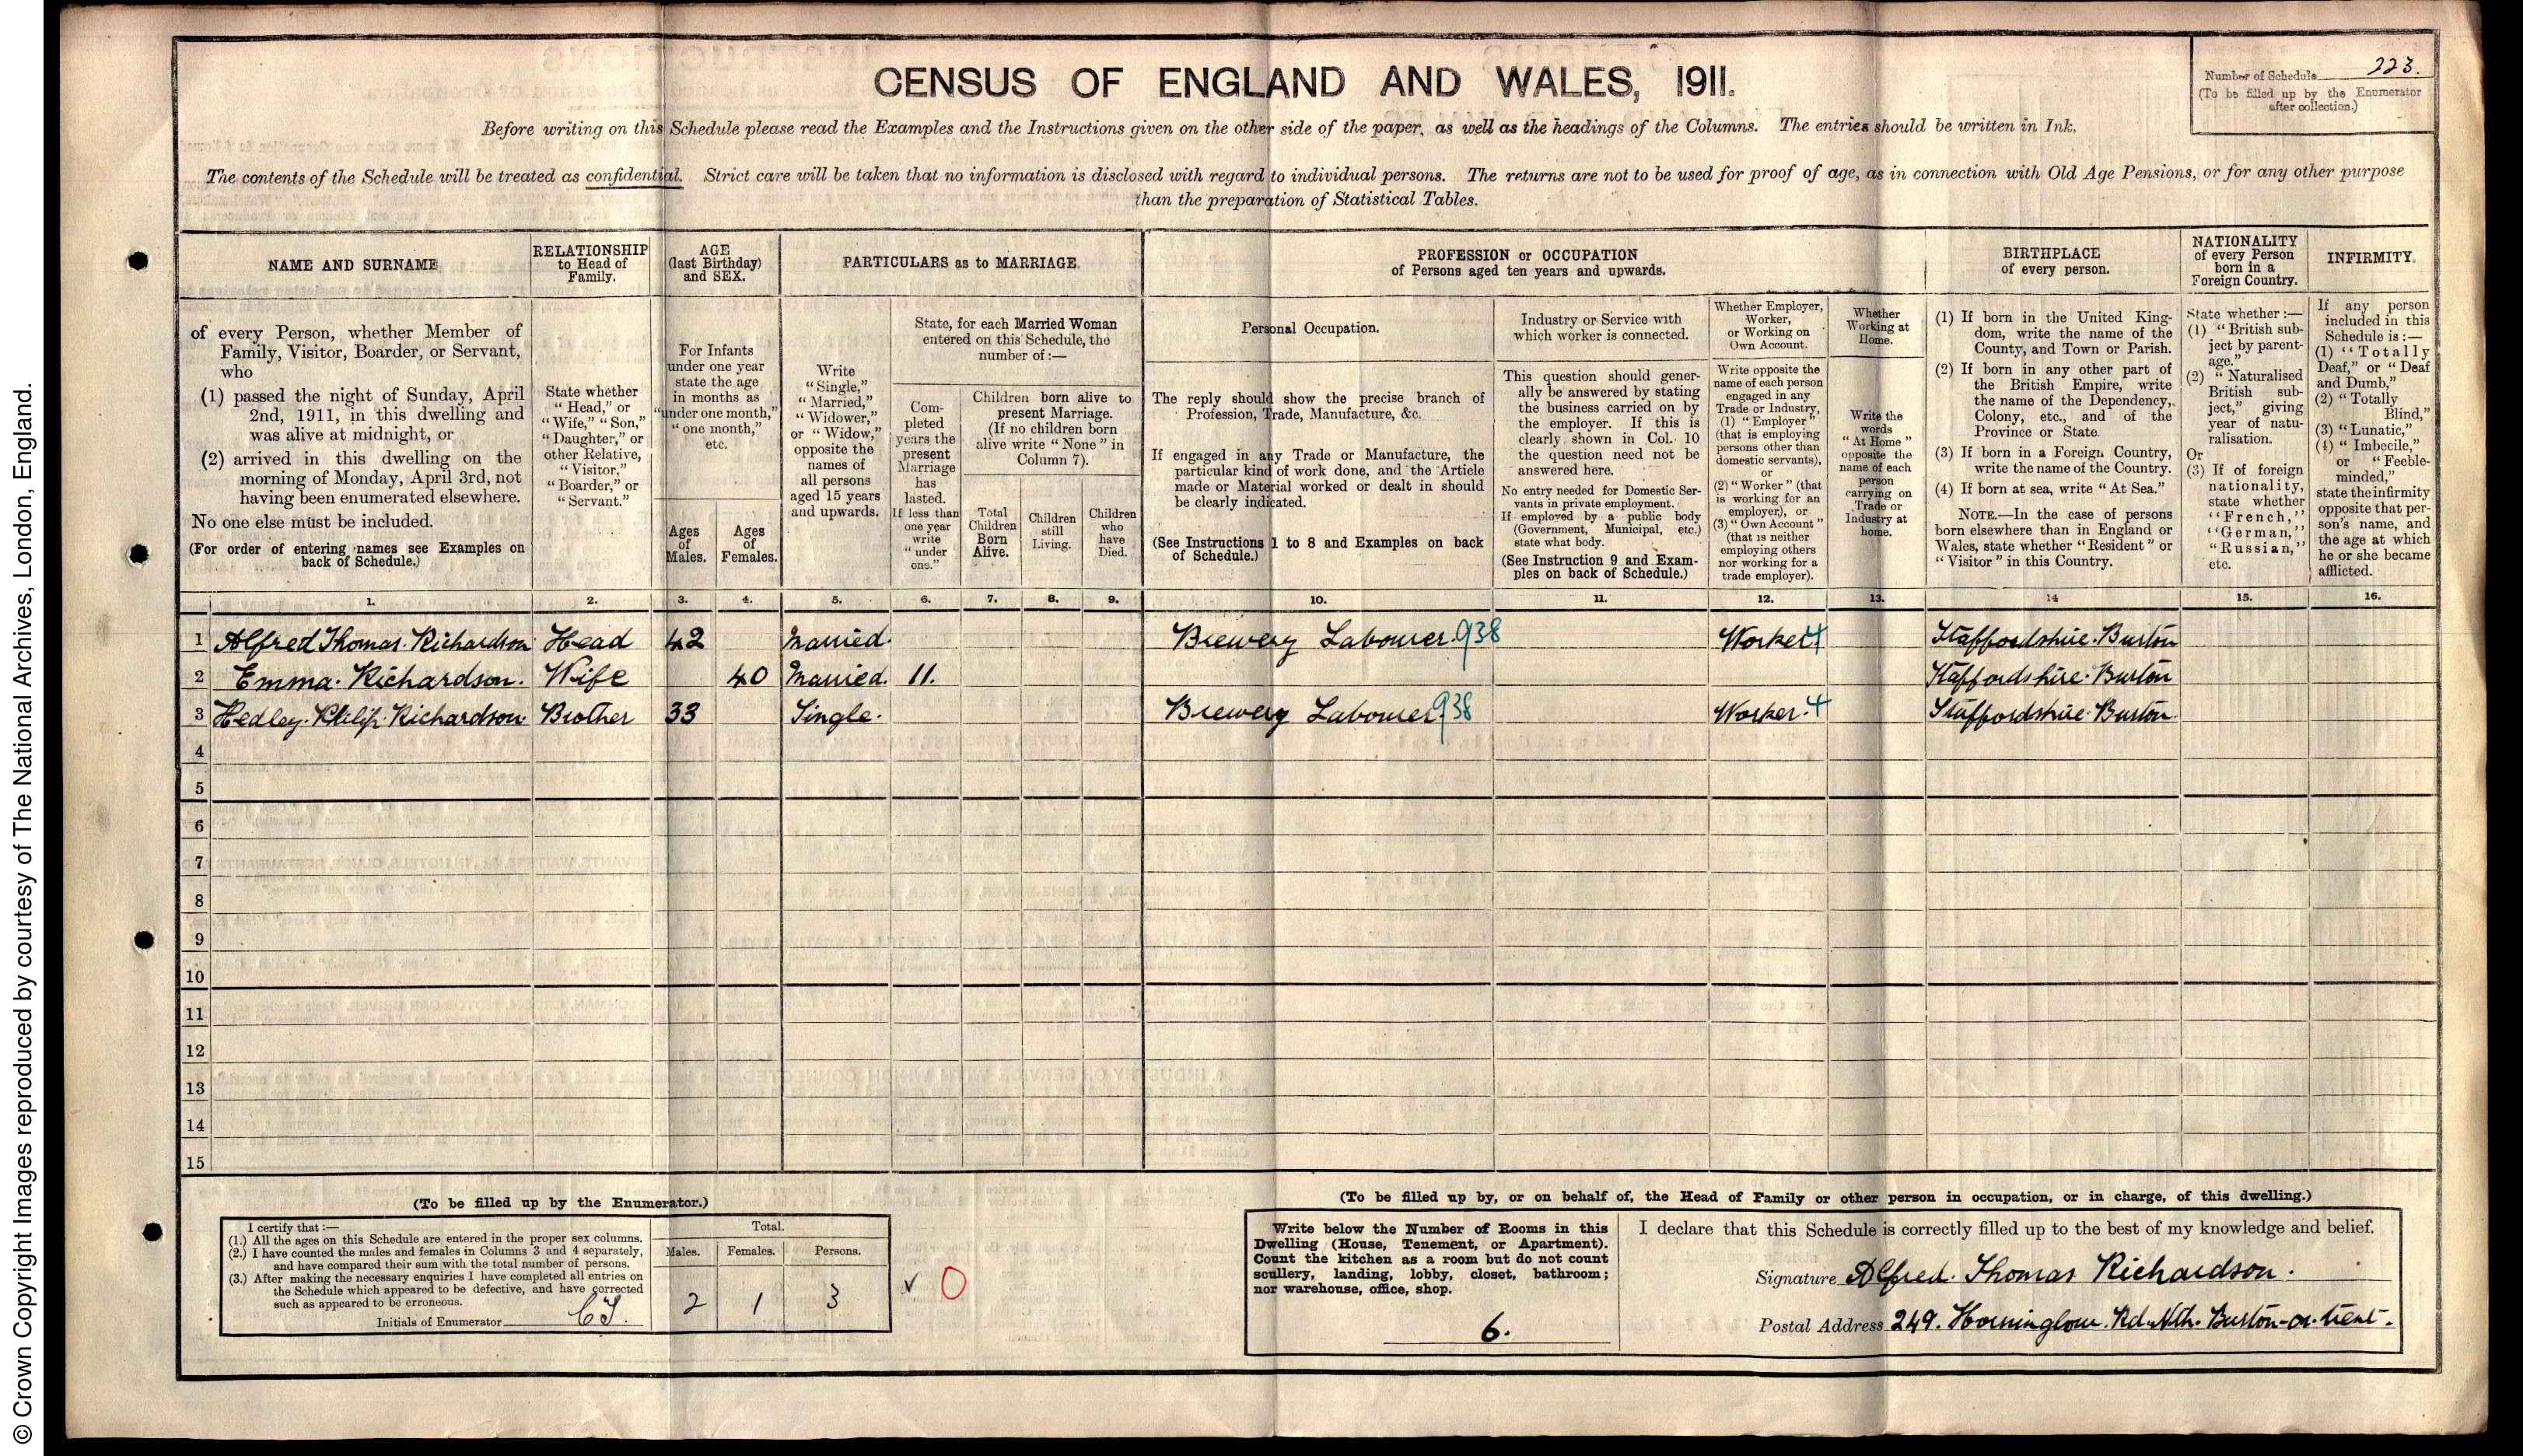 © Crown Copyright Images reproduced by courtesy of The National Archives, London, England.
CENSUS OF ENGLAND AND WALES, 1911.
Number of Schedule 223.
(To be filled up by the Enumerator
after collection.)
Before writing on this Schedule please read the Examples and the Instructions given on the other side of the paper, as well as the headings of the Columns. The entries should be written in Ink.
The contents of the Schedule will be treated as confidential. Strict care will be taken that no information is disclosed with regard to individual persons. The returns are not to be used for proof of age, as in connection with Old Age Pensions, or for any other purpose
than the preparation of Statistical Tables.
NAME AND SURNAME
of every Person, whether Member of
Family, Visitor, Boarder, or Servant,
who
(1) passed the night of Sunday, April
2nd, 1911, in this dwelling and
was alive at midnight, or
(2) arrived in this dwelling on the
morning of Monday, April 3rd, not
having been enumerated elsewhere.
No one else must be included.
(For order of entering names see Examples on
back of Schedule.)
RELATIONSHIP
to Head of
Family.
State whether
“Head,” or
“Wife,” “Son,”
“Daughter,” or
other Relative,
“Visitor,”
“Boarder,” or
“Servant.”
AGE
(last Birthday)
and SEX.
For Infants
under one year
state the age
in months as
“under one month,”
“one month,”
etc.
Ages
of
Males.
Ages
of
Females.
PARTICULARS as to MARRIAGE.
Write
“Single,”
“Married,”
“Widower,”
or “Widow,”
opposite the
names of
all persons
aged 15 years
and upwards.
State, for each Married Woman
entered on this Schedule, the
number of:—
Com-
pleted
years the
present
Marriage
has
lasted.
If less than
one year
write
“under
one.”
Children born alive to
present Marriage.
(If no children born
alive write “None” in
Column 7).
Total
Children
Born
Alive.
Children
still
Living.
Children
who
have
Died.
PROFESSION or OCCUPATION
of Persons aged ten years and upwards.
Personal Occupation.
The reply should show the precise branch of
Profession, Trade, Manufacture, &c.
If engaged in any Trade or Manufacture, the
particular kind of work done, and the Article
made or Material worked or dealt in should
be clearly indicated.
(See Instructions 1 to 8 and Examples on back
of Schedule.)
Industry or Service with
which worker is connected.
This question should gener-
ally be answered by stating
the business carried on by
the employer. If this is
clearly shown in Col. 10
the question need not be
answered here.
No entry needed for Domestic Ser-
vants in private employment.
If employed by a public body
(Government, Municipal, etc.)
state what body.
(See Instruction 9 and Exam-
ples on back of Schedule.)
Whether Employer,
Worker,
or Working on
Own Account.
Write opposite the
name of each person
engaged in any
Trade or Industry,
(1) “Employer”
(that is employing
persons other than
domestic servants),
or
(2) “Worker” (that
is working for an
employer), or
(3) “Own Account”
(that is neither
employing others
nor working for a
trade employer).
Whether
Working at
Home.
Write the
words
“At Home”
opposite the
name of each
person
carrying on
Trade or
Industry at
home.
BIRTHPLACE
of every person.
(1) If born in the United King-
dom, write the name of the
County, and Town or Parish.
(2) If born in any other part of
the British Empire, write
the name of the Dependency,
Colony, etc., and of the
Province or State.
(3) If born in a Foreign Country,
write the name of the Country.
(4) If born at sea, write “At Sea.”
NOTE.—In the case of persons
born elsewhere than in England or
Wales, state whether “Resident” or
“Visitor” in this Country.
NATIONALITY
of every Person
born in a
Foreign Country.
State whether:—
(1) “British sub-
ject by parent-
age.”
(2) “Naturalised
British sub-
ject,” giving
year of natu-
ralisation.
Or
(3) If of foreign
nationality,
state whether
“French,”
“German,”
“Russian,”
etc.
INFIRMITY.
If any person
included in this
Schedule is:—
(1) “Totally
Deaf,” or “Deaf
and Dumb,”
(2) “Totally
Blind,”
(3) “Lunatic,”
(4) “Imbecile,”
or “Feeble-
minded,”
state the infirmity
opposite that per-
son's name, and
the age at which
he or she became
afflicted.
1. 2. 3. 4. 5. 6. 7. 8. 9. 10. 11. 12. 13. 14 15. 16.
1 Alfred Thomas. Richardson Head 42 Married. Brewery Labourer. 938 Worker 4 Staffordshire. Burton
2 Emma. Richardson. Wife 40 Married. 11. Staffordshire. Burton
3 Hedley. Philip. Richardson. Brother 33 Single. Brewery Labourer 938 Worker. 4 Staffordshire. Burton.
4
5
6
7
8
9
10
11
12
13
14
15
(To be filled up by the Enumerator.)
I certify that:—
(1.) All the ages on this Schedule are entered in the proper sex columns.
(2.) I have counted the males and females in Columns 3 and 4 separately,
and have compared their sum with the total number of persons.
(3.) After making the necessary enquiries I have completed all entries on
the Schedule which appeared to be defective, and have corrected
such as appeared to be erroneous.
Initials of Enumerator
Total.
Males. Females. Persons.
2 1 3
(To be filled up by, or on behalf of, the Head of Family or other person in occupation, or in charge, of this dwelling.)
Write below the Number of Rooms in this
Dwelling (House, Tenement, or Apartment).
Count the kitchen as a room but do not count
scullery, landing, lobby, closet, bathroom;
nor warehouse, office, shop.
6.
I declare that this Schedule is correctly filled up to the best of my knowledge and belief.
Signature Alfred. Thomas Richardson.
Postal Address 249. Horninglow. Rd. Nth. Burton-on-Trent.